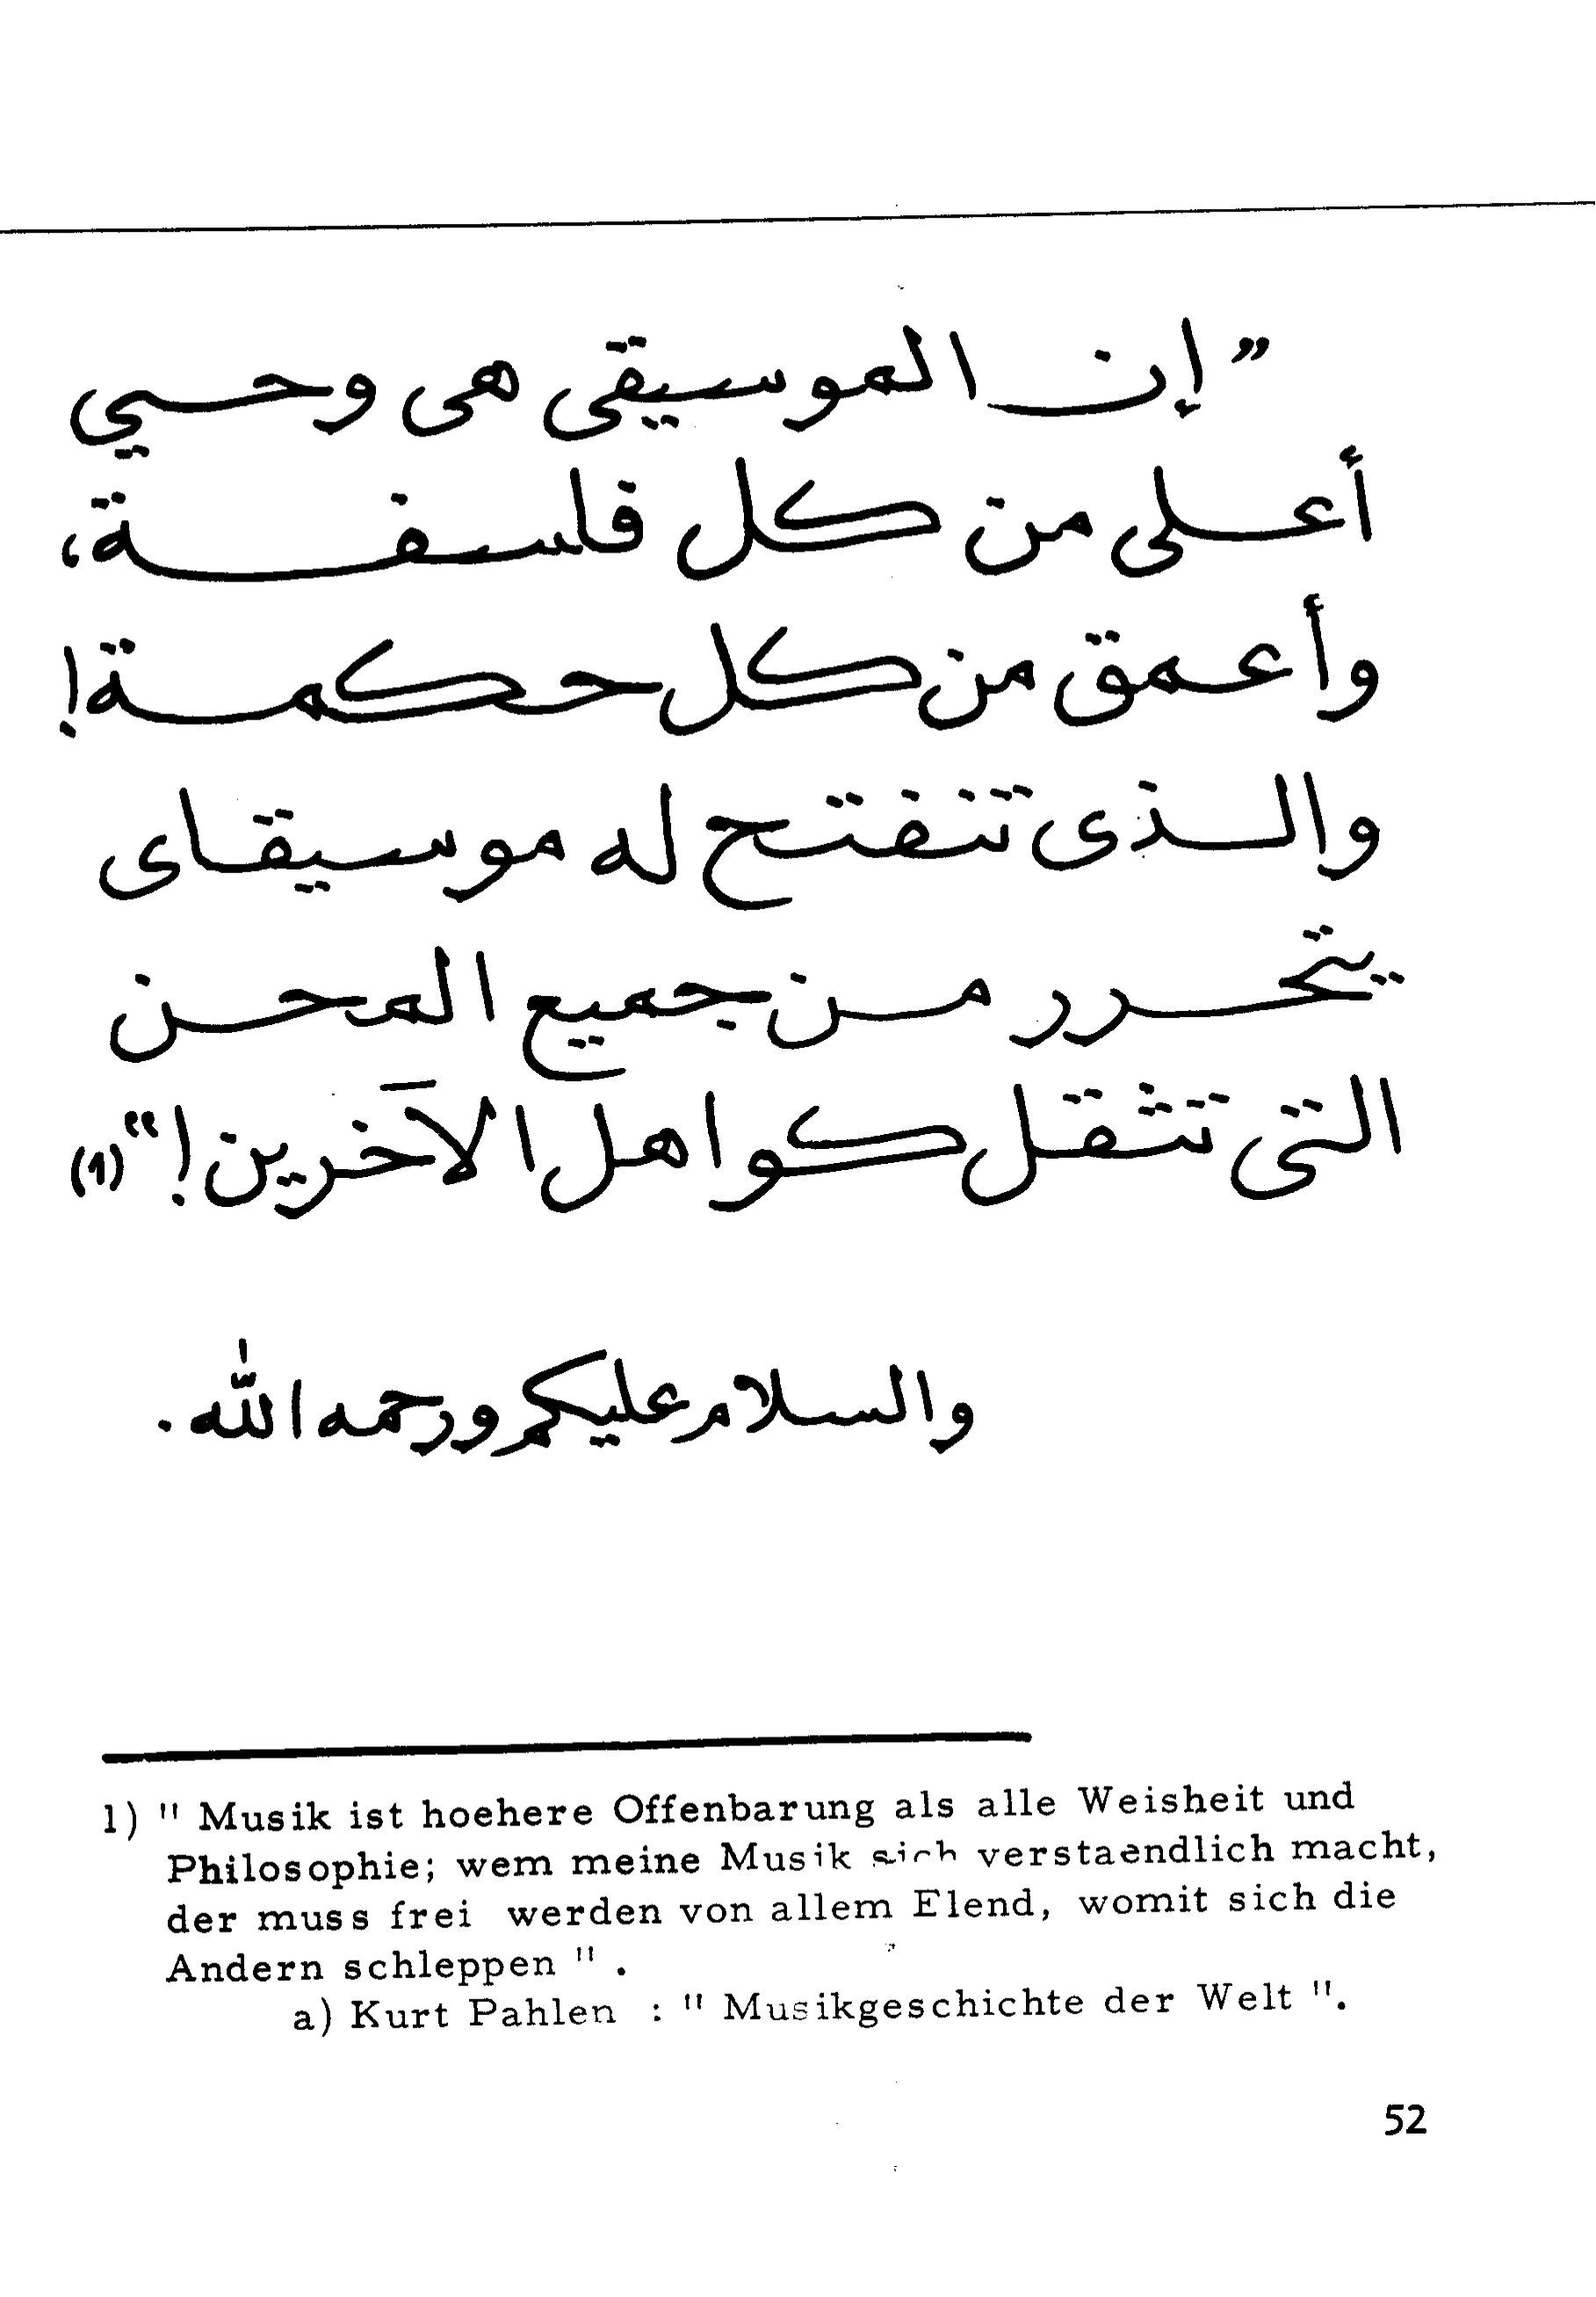 ”إن الموسيقى هى وحي
أعلى من كل فلسفة،
وأعمق من كل حكمة!
والذى تنفتح له موسيقاى
يتحرر من جميع المحن
التى تثقل كواهل الآخرين!“(1)
والسلام عليكم ورحمه الله.
1) " Musik ist hoehere Offenbarung als alle Weisheit und
Philosophie; wem meine Musik sich verstaendlich macht,
der muss frei werden von allem Elend, womit sich die
Andern schleppen " .
a) Kurt Pahlen : " Musikgeschichte der Welt ".
52